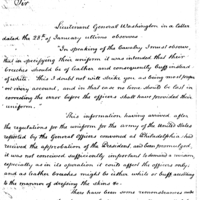 Sir
Lieutenant General Washington in a letter
dated the 28th of January ultimo observes
"In speaking of the Cavalry I must observe,
that in specifying their uniform it was intended that their
breeches should be of leather and consequently buff instead
of white. This I do not will strike you as being most proper
on every account, and in that case no time should be lost in
correcting the error before the officers shall have provided their
"uniform."
This information having arrived after
the regulations for the uniform for the army of the United States
reported by the General Officers convened at Philadelphia had
received the approbation of the President and been promulgated,
it was not conceived sufficiently important to demand a revision
especially as in its operation it would affect the officers only;
and as leather breeches might be either white or buff according
to the manner of dressing the skins &c.
There have been some remonstrances also